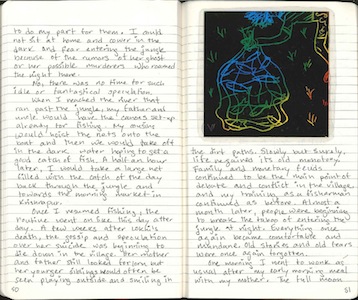 to do my part for them. I could
not sit at home and cower in the
dark and fear entering the jungle
because of the rumors of her ghost
or her possible murderers who roamed
the night there.
No, there was no time for such
idle or fantastical speculation.
When I reached the river that
ran past the jungle, my father and
uncle would have the canoes set-up
already for fishing. My cousins
would the nets onto the
boat and then we would take off
in the dark water hoping to get a
good catch of fish. A half an hour
later, I would take a large net
filled with the catch of the day
back through the jungle and
towards the morning market in
Krishnapur.
Once I resumed fishing, the
routine went on like this day after
day. A few weeks after
death, the gossip and speculation
over her suicide was beginning to
die down in the village. Her mother
and father still looked but
her younger siblings would often be
seen playing outside and smiling in
50
the dirt paths. Slowly but surely,
life regained its old monotony.
Family and monetary feuds
continued to be the main point of
debate and conflict in the village
and my training as a fisherman
continued as before. Almost a
month later, people were beginning
to break the taboo of entering the
jungle at night. Everything once
again became comfortable and
mundane. Old stories and old fears
were once again forgotten.
One morning, I went to work as
usual after my early morning meal
with my mother. The full moon
51